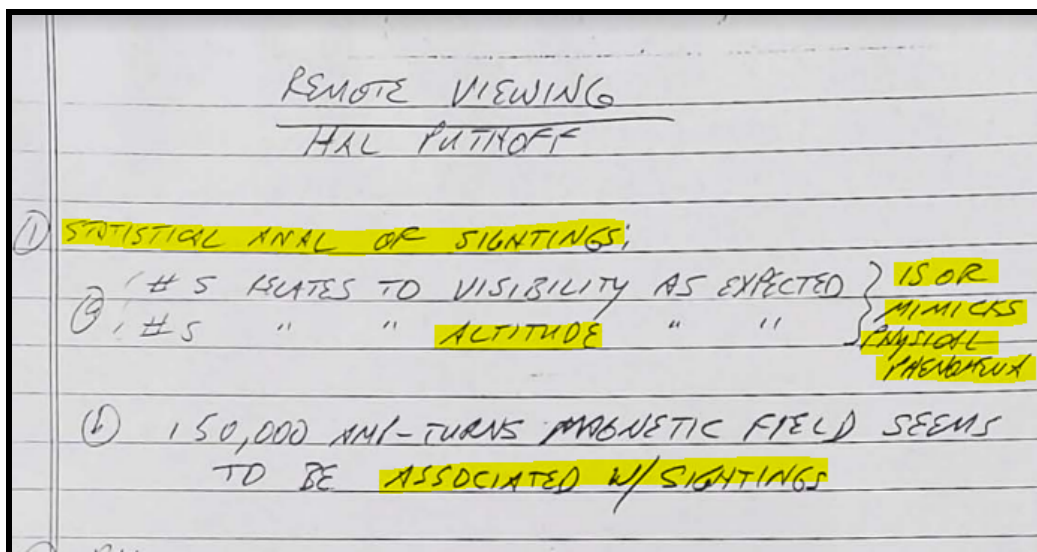 REMOTE VIEWING
HAL PUTHOFF
① STATISTICAL ANAL OF SIGHTINGS:
ⓐ #S RELATES TO VISIBILITY AS EXPECTED } IS OR
#S " " ALTITUDE " " MIMICKS
PHYSICAL
PHENOMENA
ⓑ 150,000 AMP-TURNS MAGNETIC FIELD SEEMS
TO BE ASSOCIATED W/ SIGHTINGS